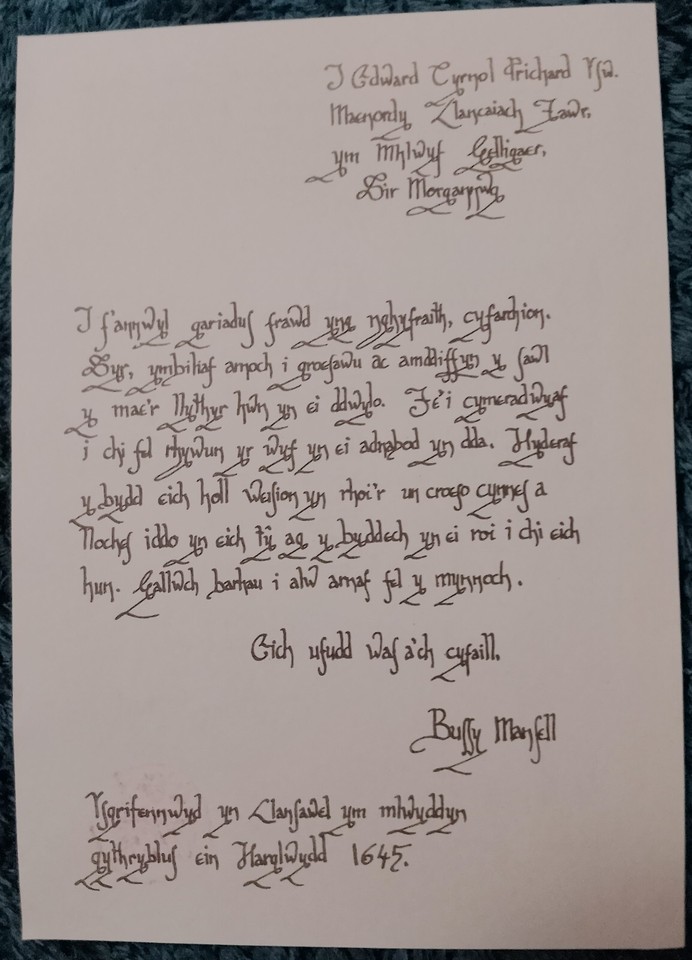 I Edward Cyrnol Prichard Ysw.
Maenordy Llancaiach Fawr,
ym Mhlwyf Gelligaer,
Sir Morgannwg
I f'annwyl gariadus frawd yng nghyfraith, cyfarchion.
Syr, ymbiliaf arnoch i groesawu ac amddiffyn y sawl
y mae'r llythyr hwn yn ei ddwylo. Fe'i cymeradwyaf
i chi fel rhywun yr wyf yn ei adnabod yn dda. Hyderaf
y bydd eich holl weision yn rhoi'r un croeso cynnes a
lloches iddo yn eich tŷ ag y byddech yn ei roi i chi eich
hun. Gallwch barhau i alw arnaf fel y mynnoch.
Eich ufudd was a'ch cyfaill,
Bussy Mansell
Ysgrifennwyd yn Llansawel ym mhwyddyn
gythryblus ein Harglwydd 1645.